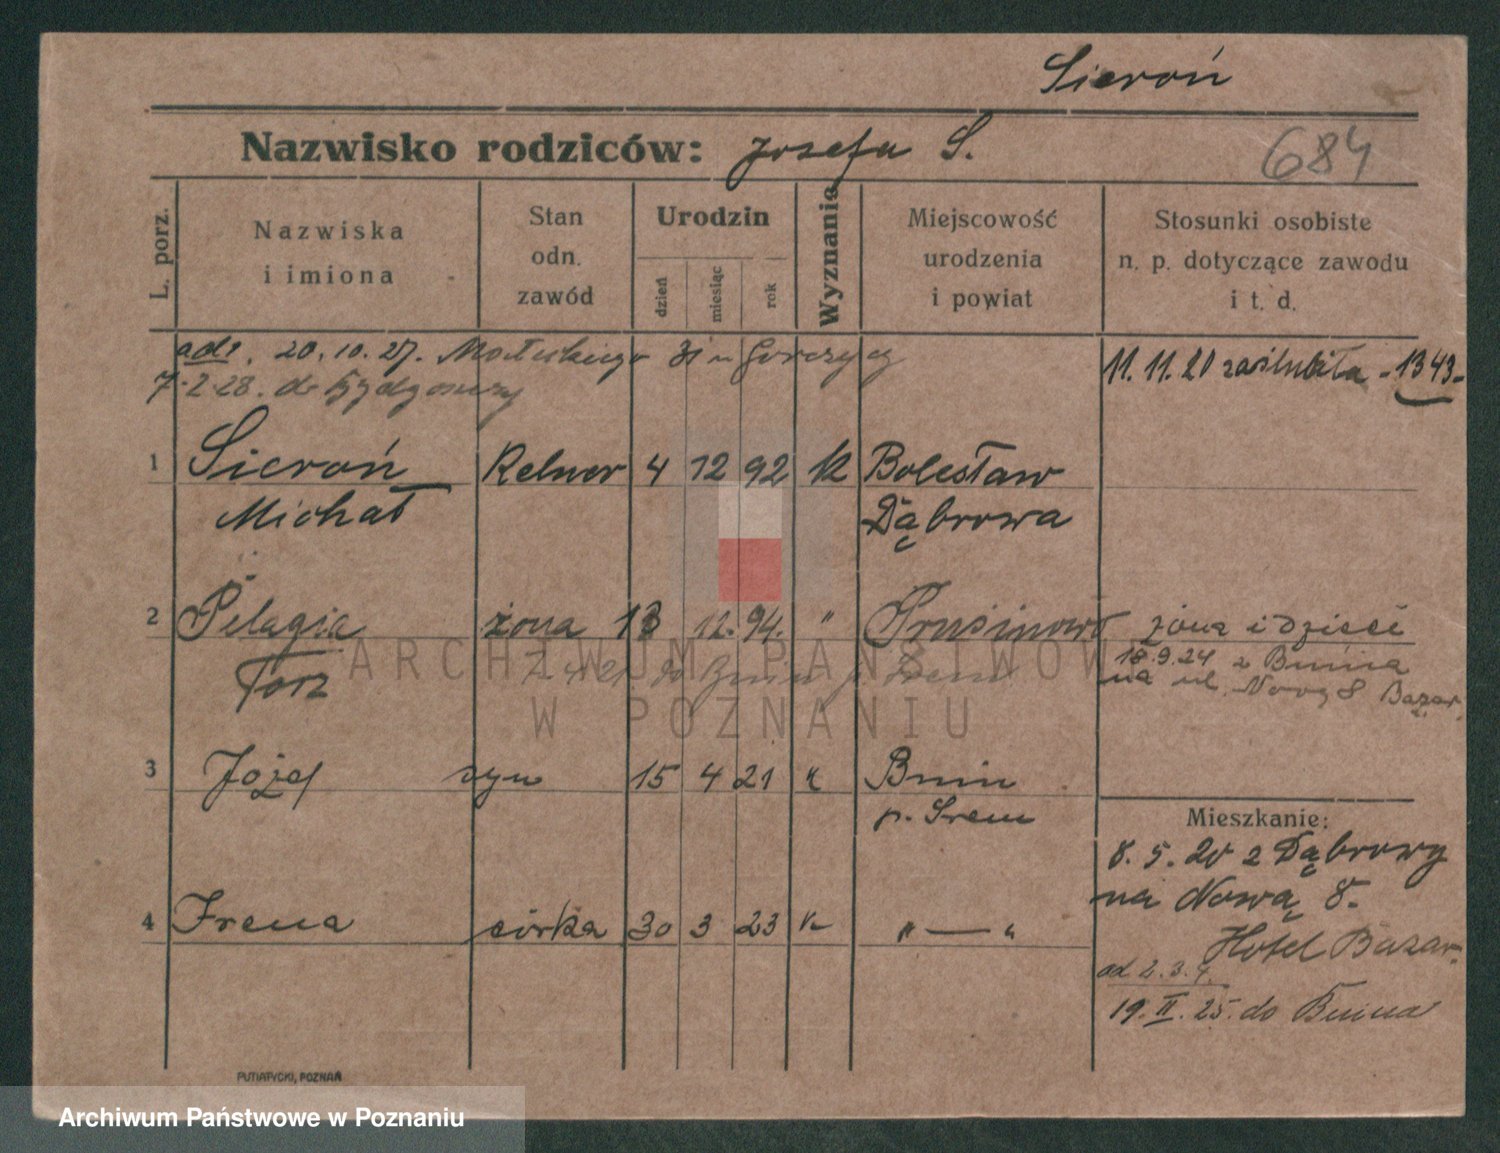 Sieroń
Nazwisko rodziców: Josefa S.
684
L. porz.
Nazwiska
i imiona
Stan
odn.
zawód
Urodzin
dzień
miesiąc
rok
Wyznanie
Miejscowość
urodzenia
i powiat
Stosunki osobiste
n. p. dotyczące zawodu
i t. d.
ad 1. 20.10.27.
7.2.28. do Bydgoszczy
11.11.20 zaślubiła -1343-
1 Sieroń Kelner 4 12 92 k Bolesław
Michał Dąbrowa
2 Pelagia żona 13 12. 94. " Prusinowo żona i dzieci
Torz
18.9.24 z Bnina
na ul. Nową 8 Bazar.
3 Józef syn 15 4 21 " Bnin
p. Śrem
Mieszkanie:
8.5.20 z Dąbrowy
na Nową 8.
4 Irena córka 30 3 23 k " — "
Hotel Bazar.
ad 2.3.4.
19.II.25. do Bnina
PUTIATYCKI, POZNAŃ
ARCHIWUM PAŃSTWOWE
W POZNANIU
Archiwum Państwowe w Poznaniu